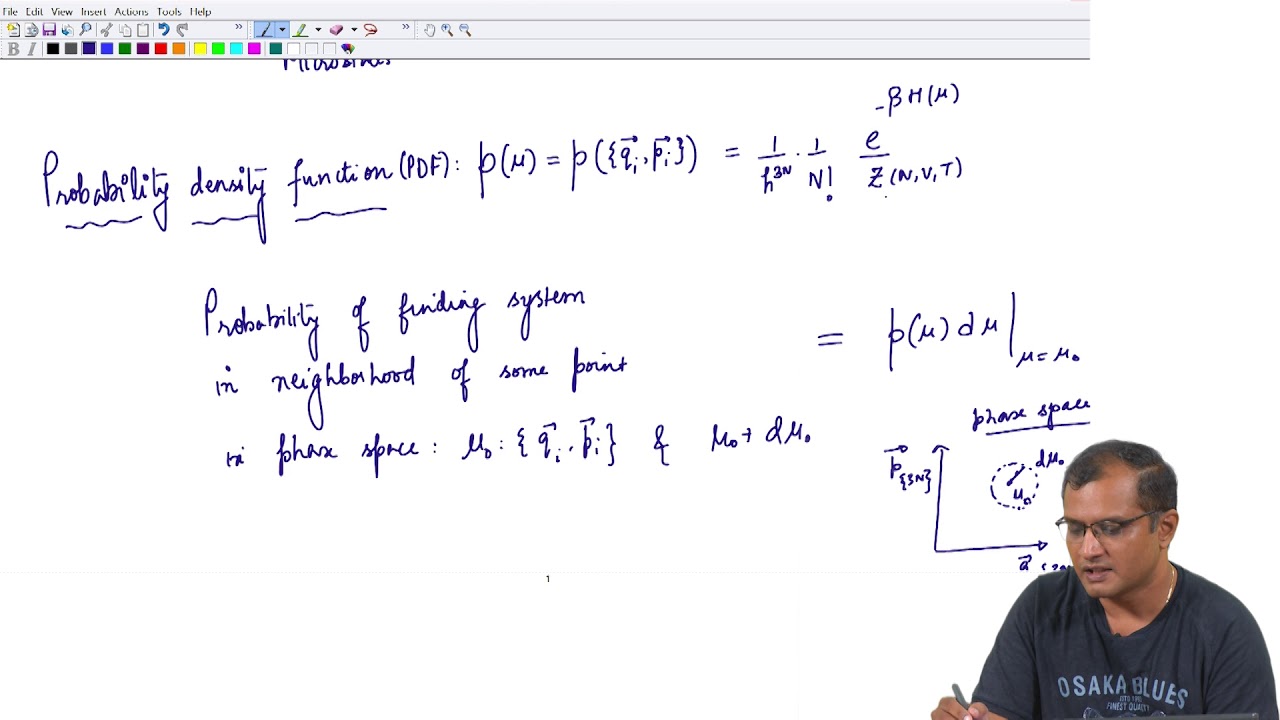 File Edit View Insert Actions Tools Help
B I
Microstates
Probability density function (PDF): p(μ) = p({q⃗ᵢ, p⃗ᵢ}) = 1/h³ᴺ · 1/N! e^(-βH(μ)) / Z(N,V,T)
Probability of finding system
in neighborhood of some point
in phase space: μ₀: {q⃗ᵢ, p⃗ᵢ} & μ₀ + dμ₀
= p(μ) dμ |μ = μ₀
phase space
p⃗{3N}
dμ₀
μ₀
1
OSAKA BLUES
FINEST QUALITY